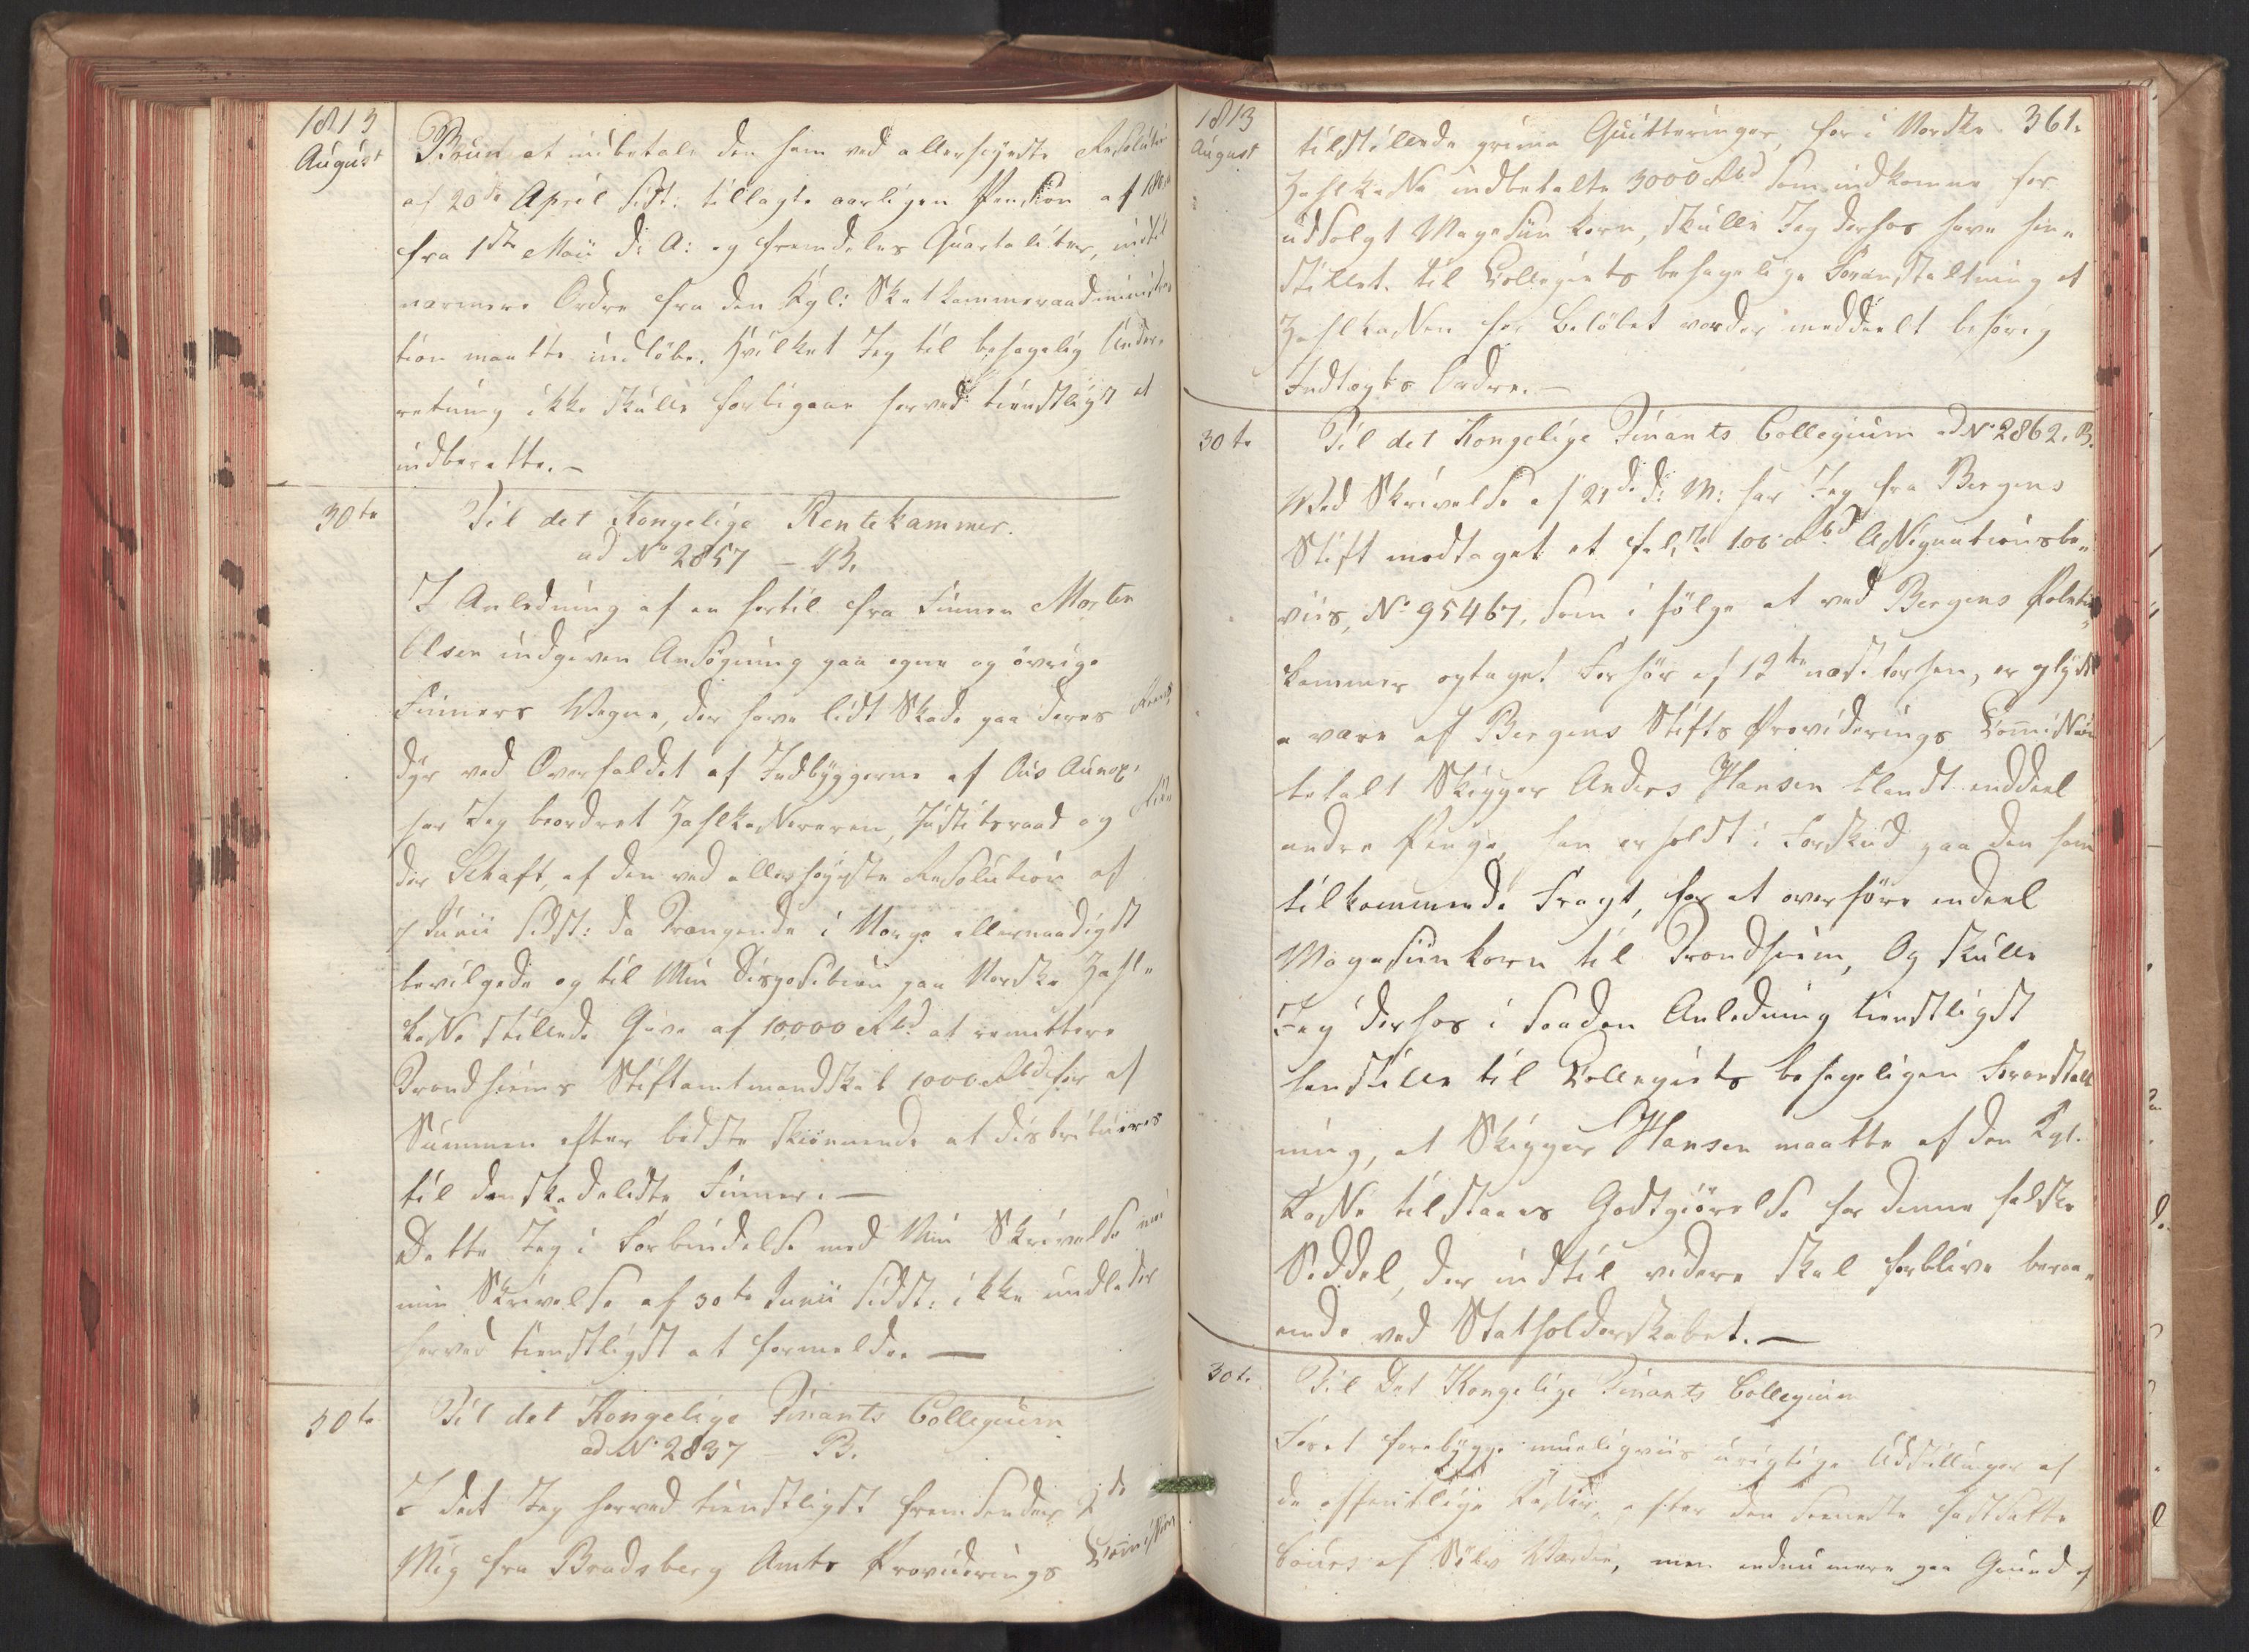 1813
August
Bruun at udbetale den ham ved allerhøyeste Resolution
af 20de April sidst: tillagte aarlige Pension af
fra 1ste Maii d: A: og fremdeles Quartaliter, indtil
nærmere Ordre fra den Kgl: Skatkammeradministra„
tion maatte indløbe. Hvilket Jeg til behagelig Under„
retning ikke skulle forbigaae herved tienstligst at
indberette. –
30te
Til det Kongelige Rentekammer.
ad No 2857 – B.
I Anledning af en hertil fra Finnen Morten
Olsen indgiven Ansøgning paa egne og øvrige
Finners Vegne, der have lidt Skade paa deres Reens„
dyr ved Overfaldet af Indbyggerne af
har Jeg beordret Zahlkasereren, Justitsraad og
der Schaft, af den ved allerhøyeste Resolution af
7 Junii sidst: de Trængende i Norge allernaadigst
bevilgede og til Min Disposition paa Norske Zahl„
kasse stillede Gave af 10,000 Rbd at remittere
Trondhiems Stiftamtmandskab 1000 Rbd for af
Summen efter bedste Skiønnende at distribueres
til de skadelidte Finner. –
Dette Jeg i Forbindelse med Min Skrivelse
min Skrivelse af 30te Junii sidst: ikke undlader
herved tienstligst at formelde. –
30te
Til det Kongelige Finants Collegium
ad No 2837 B.
I det Jeg herved tienstligst fremsender 2de
Mig fra Bradsberg Amts Providerings Commission
1813
August
361.
tilstillede Qvitteringer, for i Norske
Zahlkasse indbetalte 3000 Rbd som indkomne for
udsolgt Magasiin Korn, skulle Jeg derhos have hen„
stillet til Collegiets behagelige Foranstaltning at
Zahlkassen for Beløbet vorder meddeelt behørig
Indtægts Ordre. –
30te
Til det Kongelige Finants Collegium ad No 2862. B.
Med Skrivelse af 21de d: M: har Jeg fra Bergens
Stift modtaget et falsk 100 Rbd Assignationsbe„
viis, No 95467, som i følge et ved Bergens Politie„
kammer optaget Forhør af 12te næstforhen, er
a være af Bergens Stifts Providerings Commission
betalt Skipper Anders Hansen blandt endeel
andre Penge, han erholdt i Forskud paa den ham
tilkommende Fragt, for at overføre endeel
Magasiinkorn til Trondhiem, Og skulle
Jeg derhos i saadan Anledning tienstligst
henstille til Collegiets behageligen Foranstalt
ning, at Skipper Hansen maatte af den Kgl.
Kasse tilstaaes Godtgiørelse for denne falske
Seddel, der indtil videre skal forblive beroe„
ende ved Statholderskabet. –
30te
Til Det Kongelige Finants Collegium
For at forebygge mueligviis urigtige Udstillinger af
de offentlige Kasser, efter den seeneste fastsatte
Cours af Sølv Værdie, men endnu mere paa Grund af